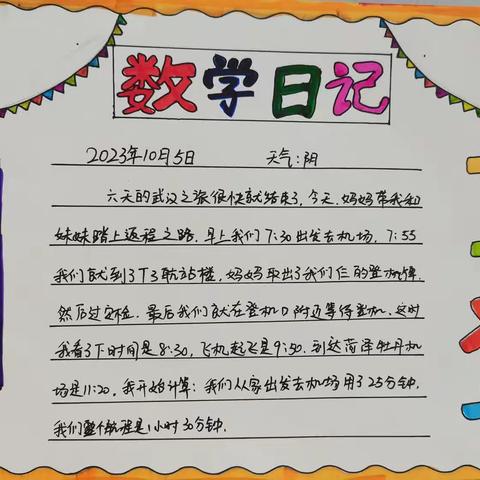 数学日记
2023年10月5日 天气:阴
六天的武汉之旅很快就结束了,今天,妈妈带我和
妹妹踏上返程之路.早上我们7:30出发去机场,7:55
我们就到了T3航站楼,妈妈取出了我们仨的登机牌.
然后过安检.最后我们就在登机口附近等待登机.这时
我看了下时间是8:30,飞机起飞是9:50.到达菏泽牡丹机
场是11:20,我开始计算:我们从家出发去机场用了25分钟.
我们整个航程是1小时30分钟.